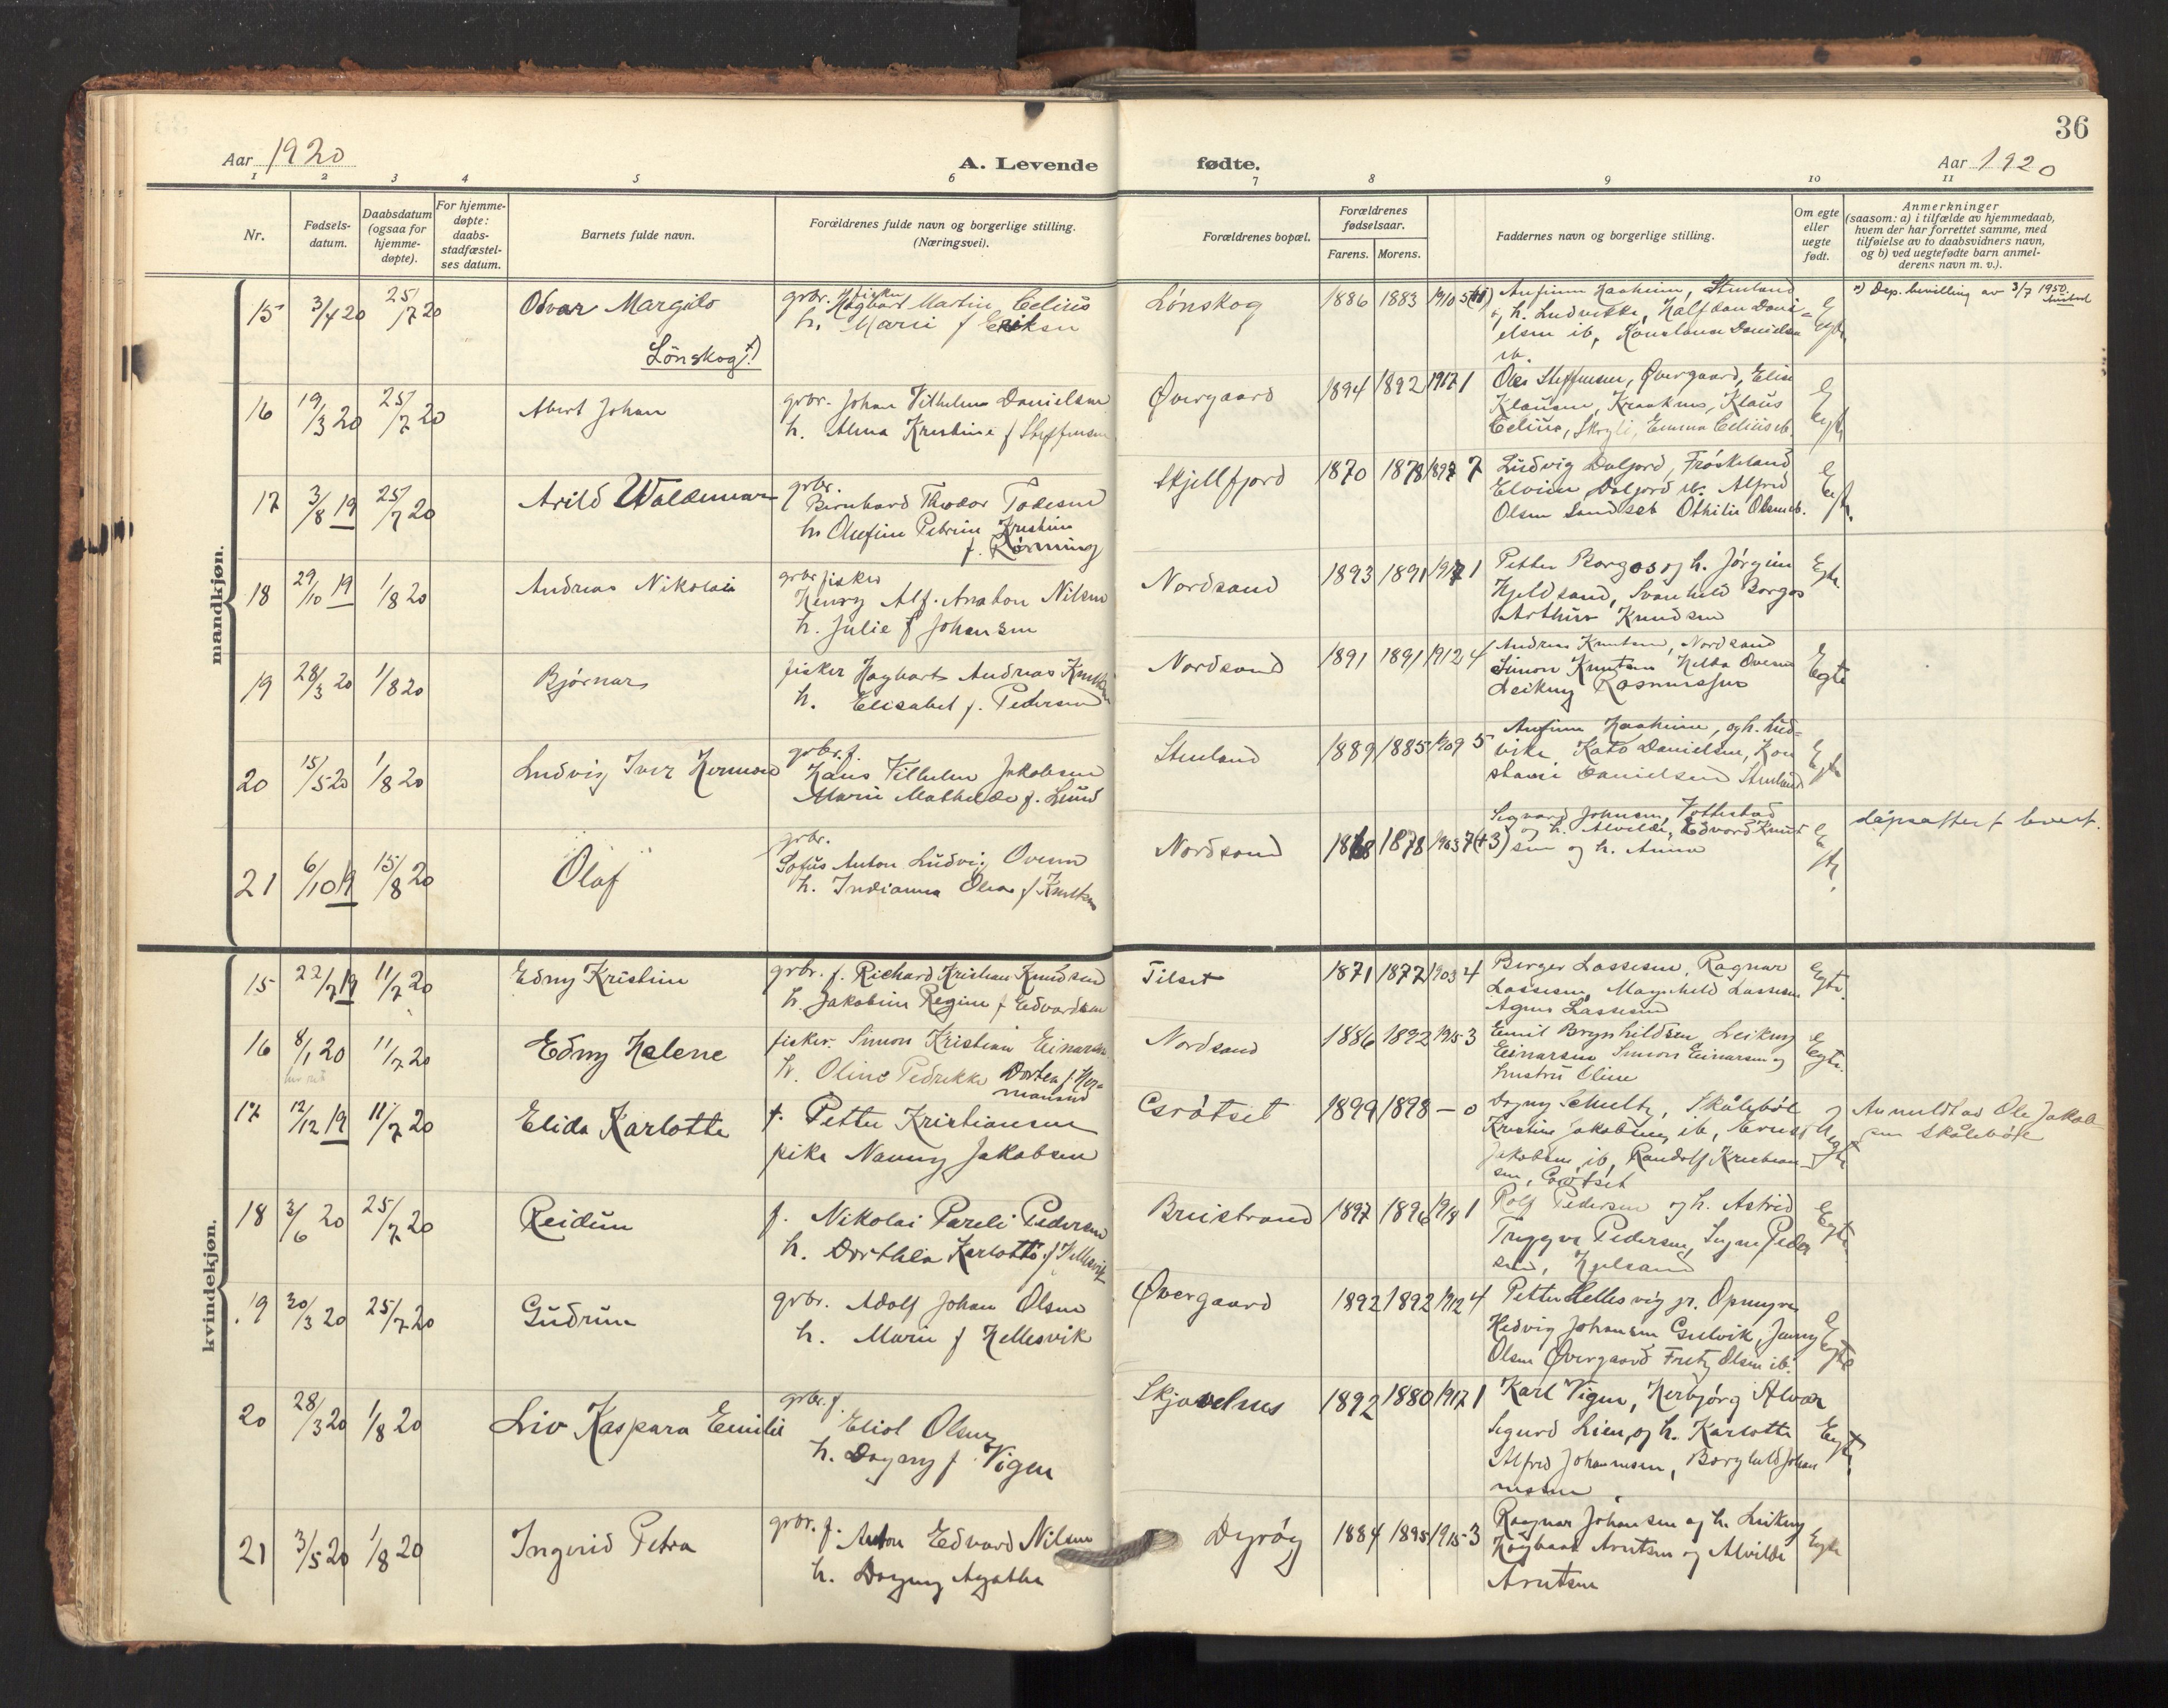 36
Aar 1920
A. Levende
fødte.
Aar 1920
1 2 3 4 5 6 7 8 9 10 11
Nr.
Fødsels-
datum.
Daabsdatum
(ogsaa for
hjemme-
døpte).
For hjemme-
døpte:
daabs-
stadfæstel-
ses datum.
Barnets fulde navn.
Forældrenes fulde navn og borgerlige stilling.
(Næringsvei).
Forældrenes bopæl.
Forældrenes
fødselsaar.
Farens. Morens.
Faddernes navn og borgerlige stilling.
Om egte
eller
uegte
født.
Anmerkninger
(saasom: a) i tilfælde av hjemmedaab,
hvem der har forrettet samme, med
tilføielse av to daabsvidners navn,
og b) ved uegtefødte barn anmel-
derens navn m. v.).
mandkjøn.
15 3/4 20 25/7 20 Odvar Margido
Lönskog
grbr. fisker Hagbart Martin Celius
h. Marie f Eriksen
Lönskog 1886 1883 1910 5
Anfinn Haaheim, Stenland
og h. Ludvikke, Halfdan Dani-
elsen ib, Konstanse Danielsen
ib.
Egte
x) Dep. bevilling av 3/7 1950.
16 19/3 20 25/7 20 Abert Johan
grbr. Johan Vilhelm Danielsen
h. Alma Kristine f Steffensen
Øvergaard 1894 1892 1917 1
Oles Steffensen, Øvergaard, Elise
Klausen, Kraaknes, Klaus
Celius, Skogli, Emma Celius ib.
Egte
17 3/8 19 25/7 20 Arild Waldemar
grbr.
Bernhard Theodor Tobiesen
h. Olufine Petrine Kristine
f. Rønning
Skjellfjord 1870 1878 1897 7
Ludvig Daljord, Frøskeland
Elvine Daljord ib. Alfred
Olsen Sandset Othilie Olsen ib.
Egte.
18 29/10 19 1/8 20 Andreas Nikolai
grbr fisker
Henry Alf. Anaton Nilsen
h. Julie f Johansen
Nordsand 1893 1891 1917 1
Petter Borgos og h. Jørgine
Hjeldsand, Svanhild Borgos
Arthur Knudsen
Egte.
19 28/3 20 1/8 20 Bjørnar
fisker Hagbart Andreas Knutsen
h. Elisabet f. Pedersen
Nordsand 1891 1891 1912 4
Andreas Knutsen, Nordsand
Simon Knutsen Helda Ovesen
Leikny Rasmussen
Egte
20 15/5 20 1/8 20 Ludvig Iver Herman
grbr. f.
Hans Vilhelm Jakobsen
Marie Mathilde f. Lund
Stenland 1889 1885 1909 5
Anfinn Haaheim, og h. Lud-
vike Kato Danielsen, Kon
stanse Danielsen Stenland
Egte
21 6/10 19 15/8 20 Olaf
grbr.
Sofus Anton Ludvig Ovesen
h. Indianna Olea f Knutsen
Nordsand 1868 1878 1903 7(+3)
Sigvard Johnsen, Vottestad
og h. Alvilde, Edvard Knut
sen og h. Anna
Egte.
dåpsattest levert.
kvindekjøn.
15 22/7 19 11/7 20 Edny Kristine
grbr. f. Richard Kristian Knudsen
h. Jakobine Regine f Edvardsen
Tilset 1871 1877 1903 4
Birger Lassesen, Ragnar
Lassesen, Magnhild Lassesen
Agnes Lassesen
Egte.
16 8/1 20 11/7 20 Edny Helene
fisker. Simon Kristian Einarsen
h. Oline Pedrikke Dortea f Her-
mansen
Nordsand 1886 1892 1915 3
Emil Brynhildsen Leikny
Einarsen Simon Einarsen og
hustru Oline
Egte.
17 12/12 19 11/7 20 Elida Karlotte
f. Petter Kristiansen
pike Nanny Jakobsen
Grötset 1899 1898 – 0
Dagny Schultz, Skålebøl
Kristine Jakobsen, ib, Ernst
Jakobsen, ib, Randolf Kristian
sen, Grötset
Uegte
Anmeldt av Ole Jakob-
sen Skålebøl
18 3/6 20 25/7 20 Reidun
f. Nikolai Pareli Pedersen
h. Dorthea Karlotte f Hellesvik
Bruistrand 1897 1896 1918 1
Rolf Pedersen og h. Astrid
Tryggve Pedersen, Signe Peder
sen, Hjelsand
Egte.
19 30/3 20 25/7 20 Gudrun
grbr. Adolf Johan Olsen
h. Marie f Hellesvik
Øvergaard 1892 1892 1912 4
Petter Hellesvig jr. Opmyre
Hedvig Johansen Gulvik, Jenny
Olsen Øvergaard Fritz Olsen ib.
Egte
20 28/3 20 1/8 20 Liv Kaspara Emilie
grbr. f.
Eliot Olsen
h. Dagny f. Vigen
Skjavelnes 1892 1880 1917 1
Karl Vigen, Herbjørg Alvar
Sigurd Lien, og h. Karlotte
Alfred Johannesen, Borghild Johan
nessen
Egte.
21 3/5 20 1/8 20 Ingerid Petra
grbr. f. Anton Edvard Nilsen
h. Dagny Agathe
Dyrøy 1884 1895 1915 3
Ragnar Johansen og h. Leikny
Hagbart Arntsen og Alvilde
Arntsen
Egte